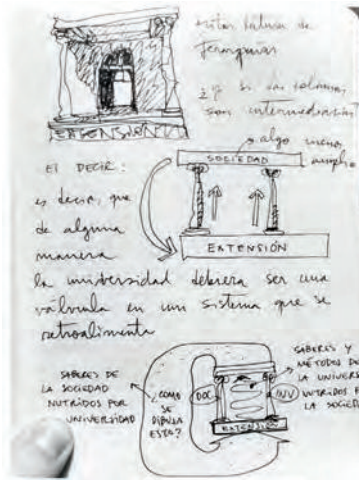 evitar falsas de
jerarquías
EXTENSIÓN
¿y si las columnas
son intermediarias
algo menos
amplio
SOCIEDAD
ES DECIR:
es decir, que
de alguna
manera
EXTENSIÓN
la universidad debiera ser una
válvula en un sistema que se
retroalimenta
SABERES DE
LA SOCIEDAD
NUTRIDOS POR
UNIVERSIDAD
¿COMO
SE
DIBUJA
ESTO?
DOC
INV
EXTENSIÓN
SABERES Y
MÉTODOS DE
LA
NUTRIDOS
LA